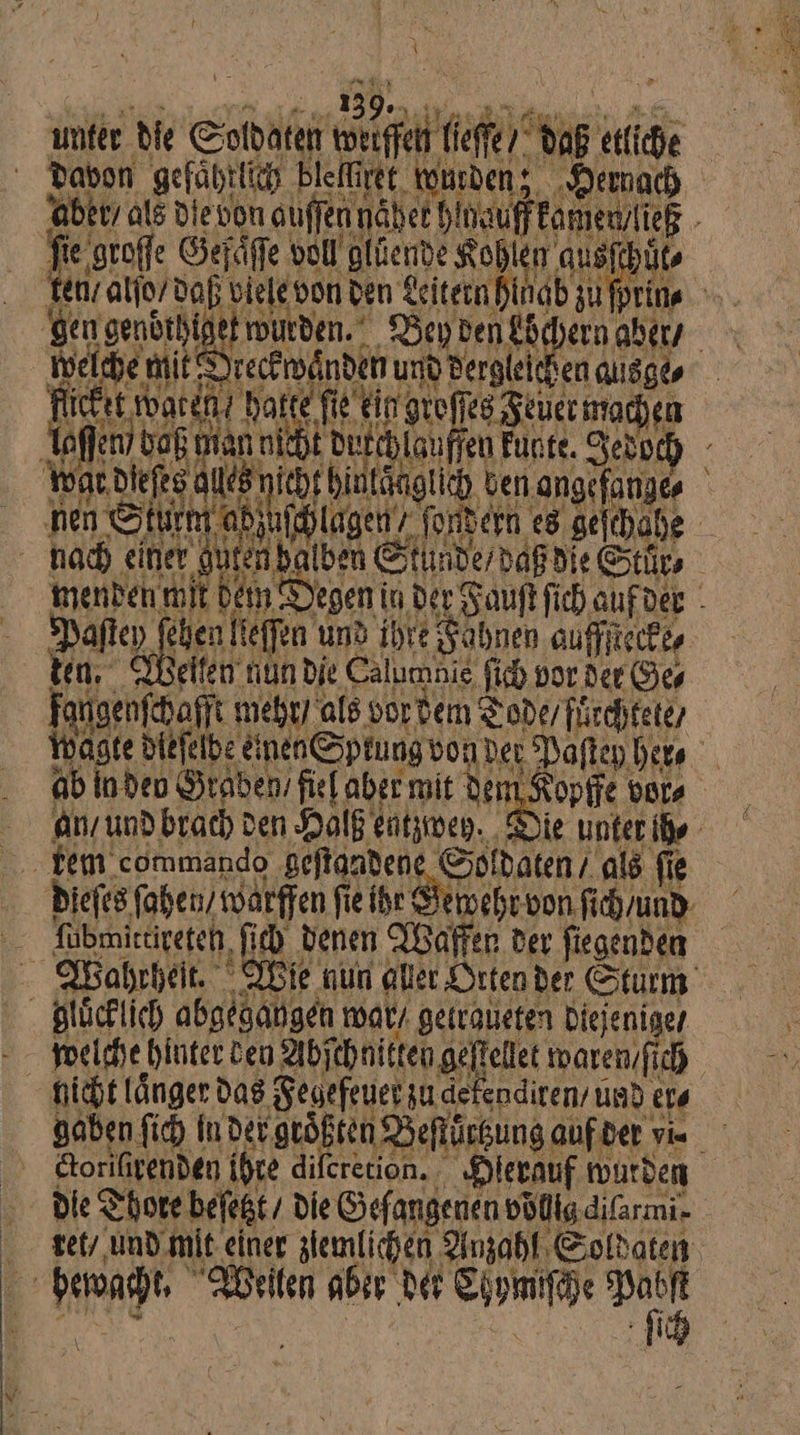 139.
unter die Soldaten werffen lieſſe / daß etliche
davon gefaͤhrlich bleſſiret wurden; Hernach
aber / als die von auſſen naͤher hinauff kamen / ließ
ſie groſſe Gefaͤſſe voll gluͤende Kohlen ausſchuͤt⸗
ten / alſo / daß viele von den Leitern hinab zu ſprin⸗
gen genoͤthiget wurden. Bey den Loͤchern aber /
welche mit Dreckwaͤnden und dergleichen ausge⸗
flicket waren / hatte ſie ein groſſes Feuer machen
laſſen / daß man nicht durchlauffen kunte. Jedoch
war dieſes alles nicht hinlaͤnglich den angefange⸗
nen Sturm abzuſchlagen / ſondern es geſchahe
nach einer guten halben Stunde / daß die Stuͤr⸗
menden mit dem Degen in der Fauſt ſich auf der
Paſtey ſehen lieſſen und ihre Fahnen auffſteck⸗
ten. Weilen nun die Calumnie ſich vor der Ge⸗
fangenſchafft mehr / als vor dem Tode / fuͤrchtete /
wagte dieſelbe einen Sprung von der Paſtey her⸗
ab in den Graben / fiel aber mit dem Kopffe vor⸗
an / und brach den Halß entzwey. Die unter ih⸗
rem commando geſtandene Soldaten / als ſie
dieſes ſahen / warffen ſie ihr Gewehr von ſich / und
ſubmittireten ſich denen Waffen der ſiegenden
Wahrheit. Wie nun aller Orten der Sturm
gluͤcklich abgegangen war / getraueten diejenige /
welche hinter den Abſchnitten geſtellet waren / ſich
nicht laͤnger das Fegefeuer zu defendiren / und er⸗
gaben ſich in der groͤßten Beſtuͤrtzung auf der vi-
ctoriſirenden ihre diſcretion. Hierauf wurden
die Thore beſetzt / die Gefangenen voͤllig diſarmi-
ret / und mit einer ziemlichen Anzahl Soldaten
bewacht. Weilen aber der Chymiſche Pabſt
ſich